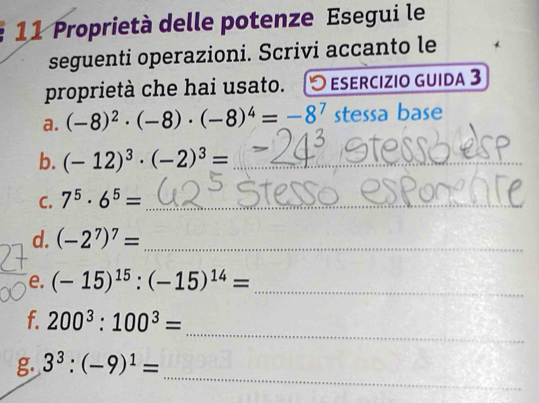 11 Proprietà delle potenze Esegui le
seguenti operazioni. Scrivi accanto le
proprietà che hai usato. ESERCIZIO GUIDA 3
a. (−8)² · (−8) · (−8)⁴ = −8⁷ stessa base
b. (−12)³ · (−2)³ = -24³ stesso esp
c. 7⁵ · 6⁵ = 42⁵ stesso esponente
d. (−2⁷)⁷ =
27
e. (−15)¹⁵ : (−15)¹⁴ =
f. 200³ : 100³ =
g. 3³ : (−9)¹ =